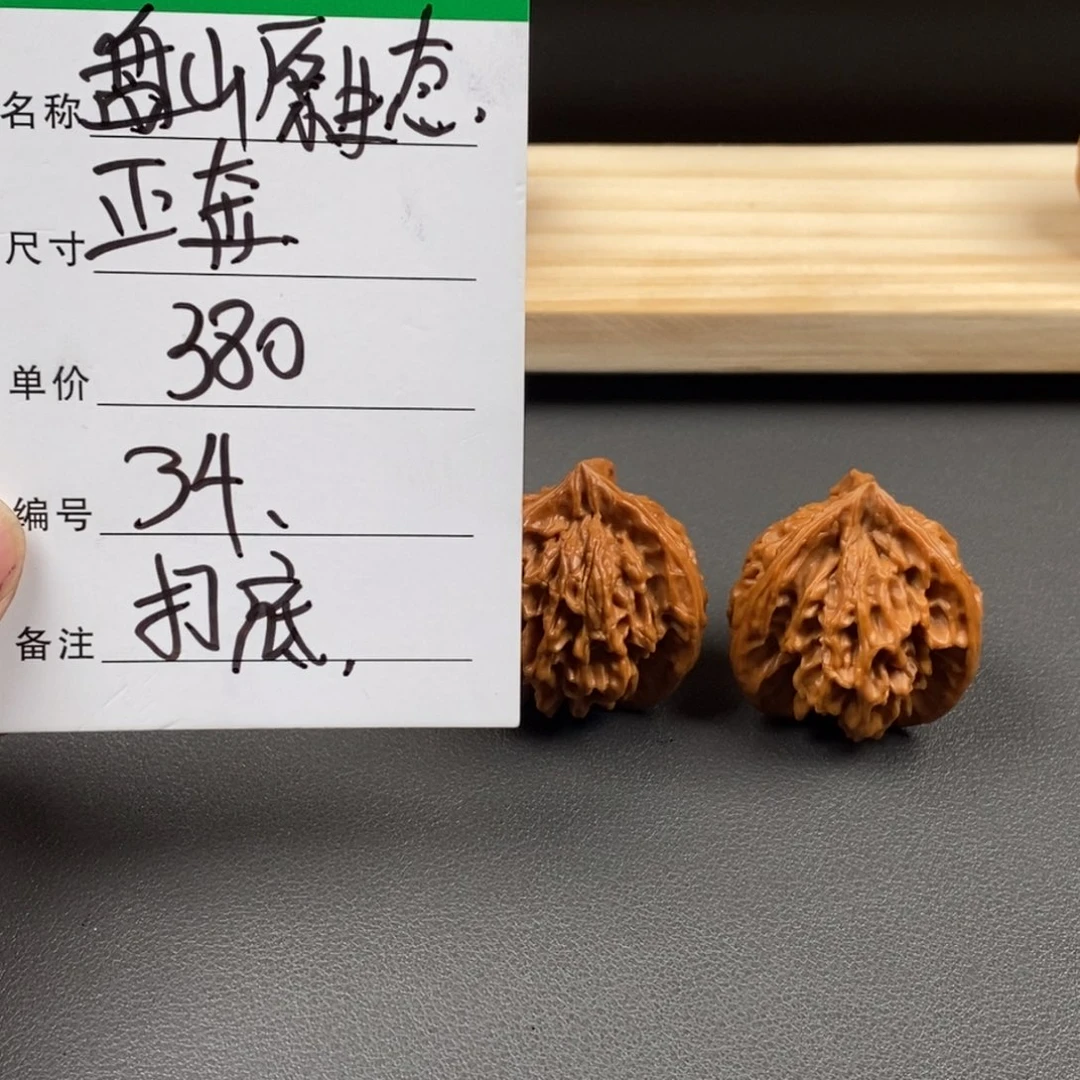 名称 盘山原生态.
尺寸 正奔
单价 380
编号 34、
备注 打底,